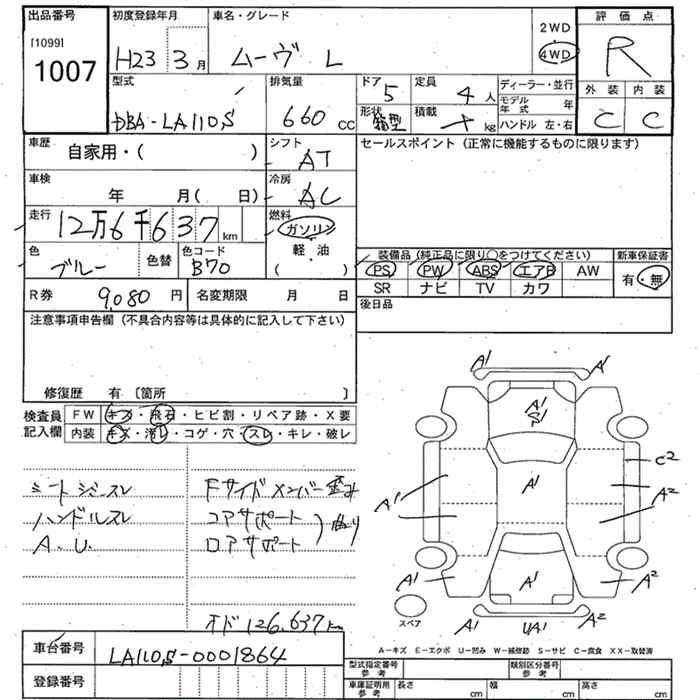 出品番号
[1099]
1007
初度登録年月
H23 3月
車名・グレード
ムーヴ L
2WD
4WD
評価点
R
外装 内装
C C
型式
DBA-LA110S
排気量
660 cc
ドア
5
定員
4人
形状
箱型
積載
kg
ディーラー・並行
モデル年式 年
ハンドル 左・右
車歴
自家用・( )
シフト
AT
セールスポイント(正常に機能するものに限ります)
車検
年 月( 日)
冷房
AC
走行
12万6千637km
燃料
ガソリン
軽・油
( )
色
ブルー
色替
色コード
B70
装備品(純正品に限り○をつけてください)
新車保証書
PS PW ABS エアB AW
有・無
SR ナビ TV カワ
R券 9,080円
名変期限 月 日
後日品
注意事項申告欄(不具合内容等は具体的に記入して下さい)
修復歴 有 〔箇所 〕
検査員記入欄
FW キズ・飛石・ヒビ割・リペア跡・X要
内装 キズ・汚レ・コゲ・穴・スレ・キレ・破レ
シートシミスレ
ハンドルスレ
A.U.
Fサイドメンバー
コアサポート
ロアサポート
曲り
オド126,637km
A1 A1
A1
S1
C2
A1 A1 A2
A1 A1 A2
スペア
A1 UA1 A2
A-キズ E-エクボ U-凹み W-補修跡 S-サビ C-腐食 XX-取替済
車台番号
LA110S-0001864
登録番号
型式指定番号 参考
類別区分番号 参考
車庫証明用 参考
長さ cm
幅 cm
高さ cm